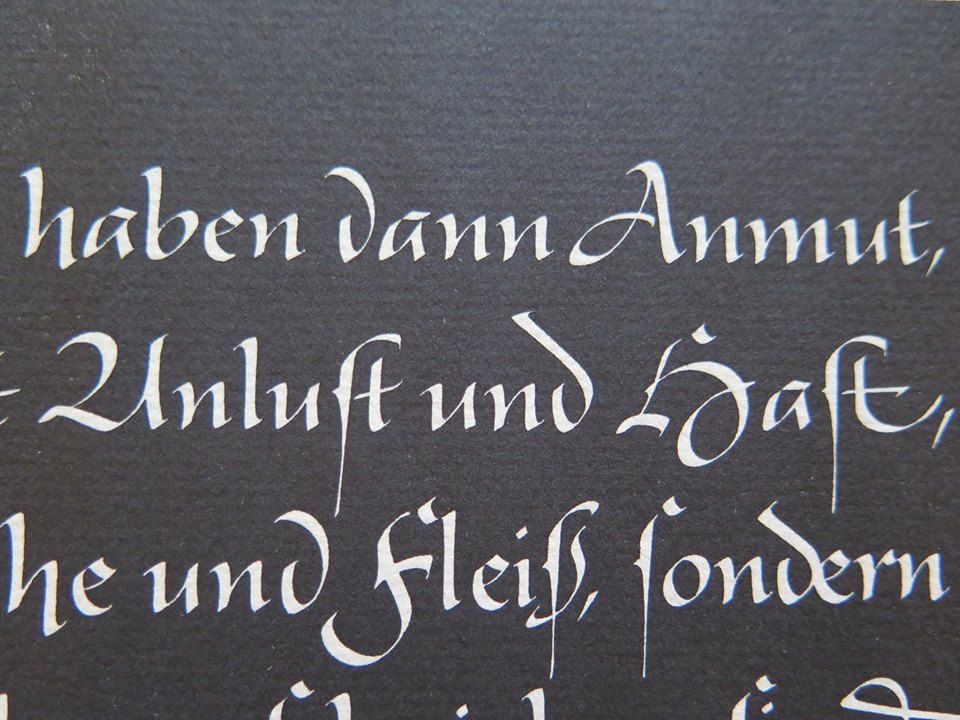 haben dann Anmut,
Unluſt und Haſt,
he und Fleiß, ſondern